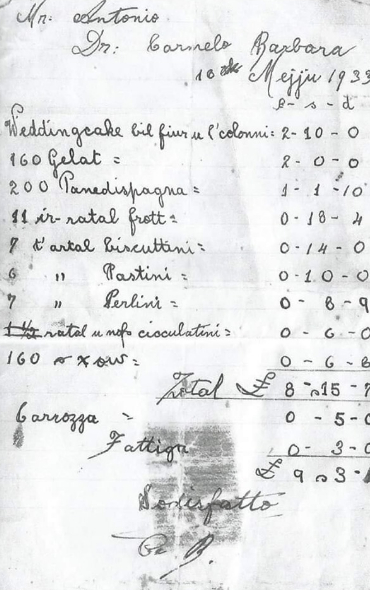 Mr. Antonio
Dr: Carmelo Barbara
10 Mejju 1933
£ - s - d
Weddingcake bil fiur u l'colonni = 2-10-0
160 Gelat = 2-0-0
200 Panedispagna = 1-1-10
11 ir-ratal frott = 0-18-4
7 t'artal biscuttini = 0-14-0
6 " Pastini = 0-10-0
7 " Perlini = 0-8-9
ratal u nofs cioculatini = 0-6-0
160 0-6-8
Total £ 8-15-7
Carrozza = 0-5-0
Fattiga 0-3-0
£ 9-3-
Sodisfatto
B.